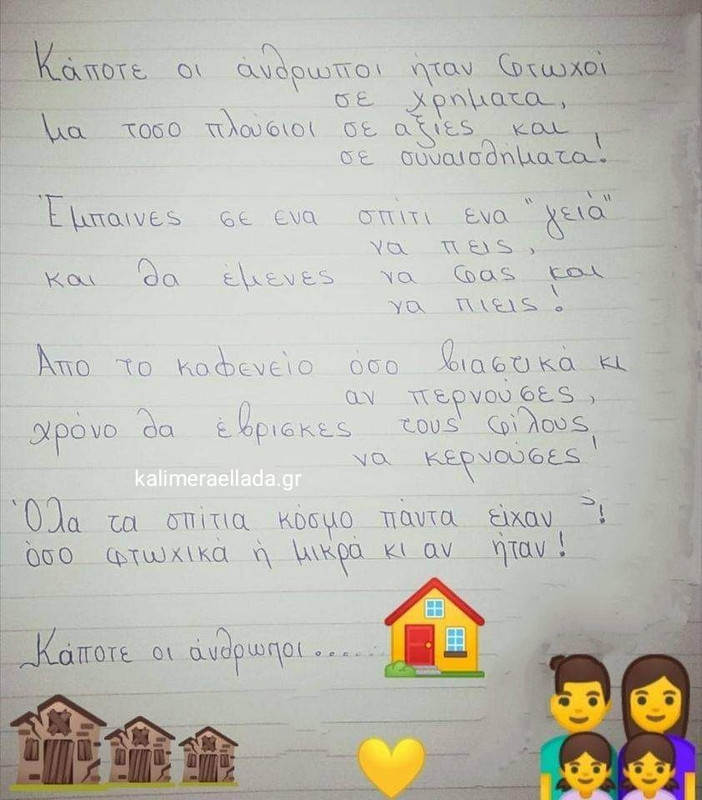 Κάποτε οι άνθρωποι ήταν φτωχοί
σε χρηματα,
μα τοσο πλούσιοι σε αξιες και
σε συναισθήματα!
Έμπαινες σε ενα σπίτι ενα "γειά"
να πεις,
και θα έμενες να φας και
να πιεις!
Απο το καφενείο όσο βιαστικά κι
αν περνούσες,
χρόνο θα έβρισκες τους φίλους
να κερνούσες!
kalimeraellada.gr
Όλα τα σπίτια κόσμο πάντα είχαν !
όσο φτωχικά ή μικρά κι αν ήταν!
Κάποτε οι άνθρωποι.....